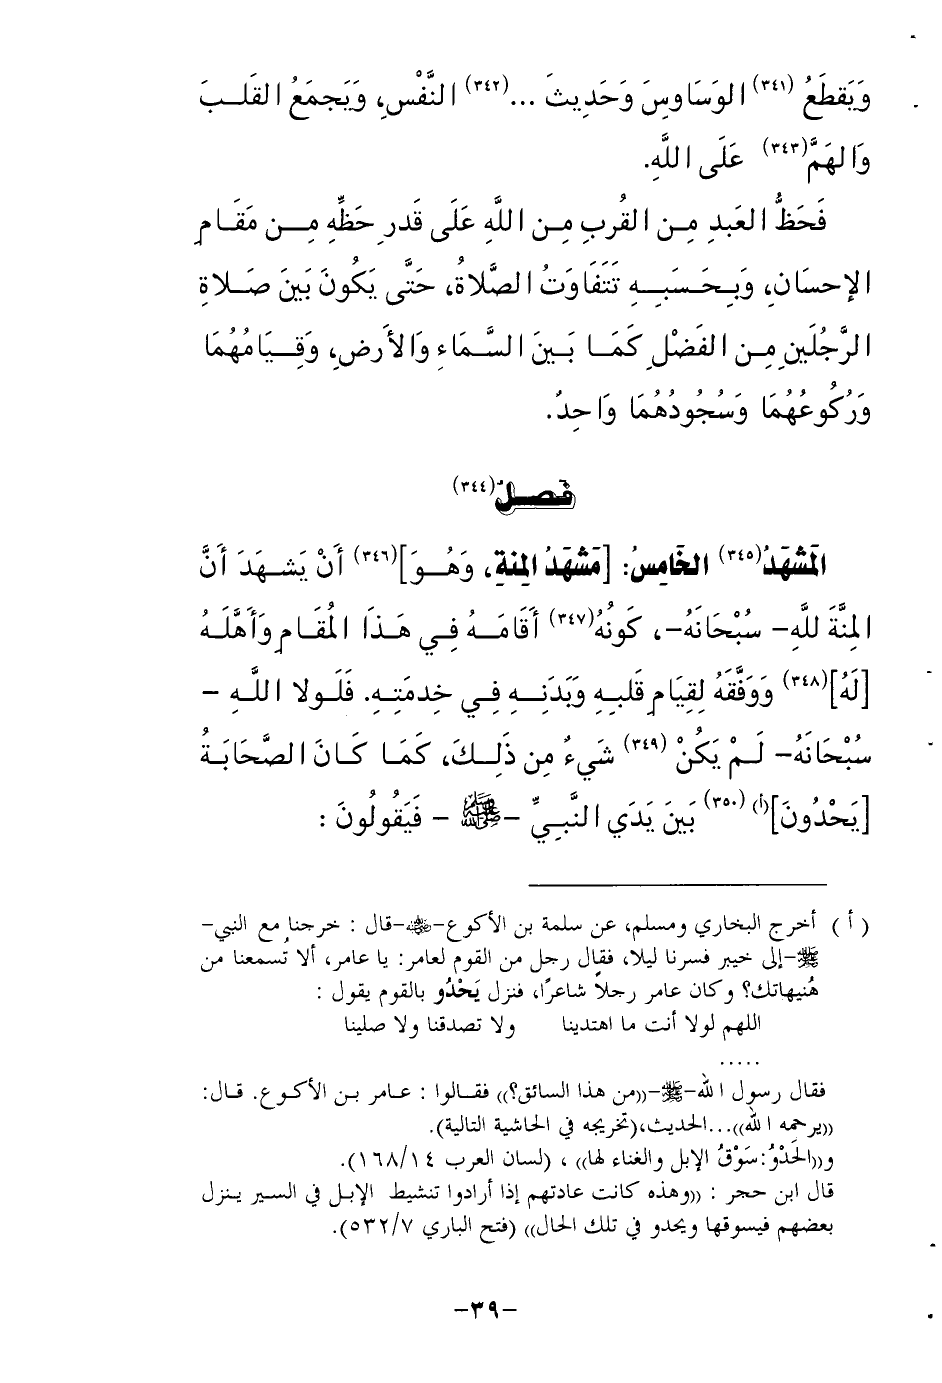 وَيَقطَعُ (٣٤١) الوَسَاوِسَ وَحَدِيثَ ...(٣٤٢) النَّفْسِ، وَيَجمَعُ القَلبَ
وَالهَمَّ(٣٤٣) عَلَى اللَّهِ.
فَحَظُّ العَبدِ مِن القُربِ مِن اللَّهِ عَلَى قَدرِ حَظِّهِ مِن مَقَامِ
الإحسَانِ، وَبِحَسَبِهِ تَتَفَاوَتُ الصَّلاةُ، حَتَّى يَكُونَ بَينَ صَلاةِ
الرَّجُلَينِ مِن الفَضْلِ كَمَا بَينَ السَّمَاءِ وَالأَرضِ، وَقِيَامُهُمَا
وَرُكُوعُهُمَا وَسُجُودُهُمَا وَاحِدٌ.
فصلٌ(٣٤٤)
المَشهَدُ(٣٤٥) الخَامِسُ: [مَشهَدُ المِنةِ، وَهُوَ](٣٤٦) أَنْ يَشهَدَ أَنَّ
المِنَّةَ للَّهِ- سُبْحَانَهُ-، كَونُهُ(٣٤٧) أَقَامَهُ فِي هَذَا المُقَامِ وَأَهَّلَهُ
[لَهُ](٣٤٨) وَوَفَّقَهُ لِقِيَامِ قَلبِهِ وَبَدَنِهِ فِي خِدمَتِهِ. فَلَولا اللَّهِ -
سُبْحَانَهُ- لَمْ يَكُنْ (٣٤٩) شَيءٌ مِن ذَلِكَ، كَمَا كَانَ الصَّحَابَةُ
[يَحْدُونَ](أ) (٣٥٠) بَينَ يَدَي النَّبِيِّ -ﷺ - فَيَقُولُونَ :
( أ ) أخرج البخاري ومسلم، عن سلمة بن الأكوع-﵁-قال : خرجنا مع النبي-
ﷺ-إلى خيبر فسرنا ليلا، فقال رجل من القوم لعامر: يا عامر، ألا تسمعنا من
هُنيهاتك؟ وكان عامر رجلاً شاعرًا، فنزل يَحْدُو بالقوم يقول :
اللهم لولا أنت ما اهتدينا ولا تصدقنا ولا صلينا
.....
فقال رسول الله-ﷺ-((من هذا السائق؟)) فقالوا : عامر بن الأكوع. قال:
((يرحمه الله))...الحديث،(تخريجه في الحاشية التالية).
و((الحَدْوُ:سَوْقُ الإبل والغناء لها)) ، (لسان العرب ١٦٨/١٤).
قال ابن حجر : ((وهذه كانت عادتهم إذا أرادوا تنشيط الإبل في السير ينزل
بعضهم فيسوقها ويحدو في تلك الحال)) (فتح الباري ٥٣٢/٧).
-٣٩-